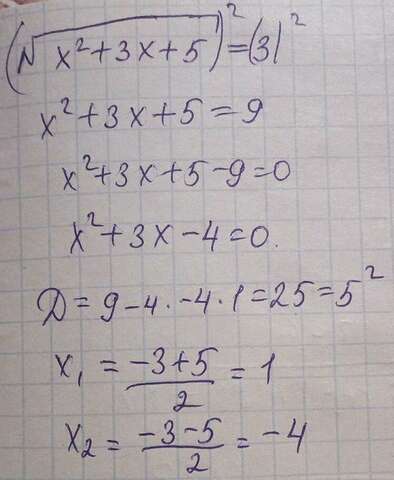 (√x²+3x+5)²=(3)²
x²+3x+5=9
x²+3x+5-9=0
x²+3x-4=0.
D=9-4·-4·1=25=5²
x₁=(-3+5)/2=1
x₂=(-3-5)/2=-4